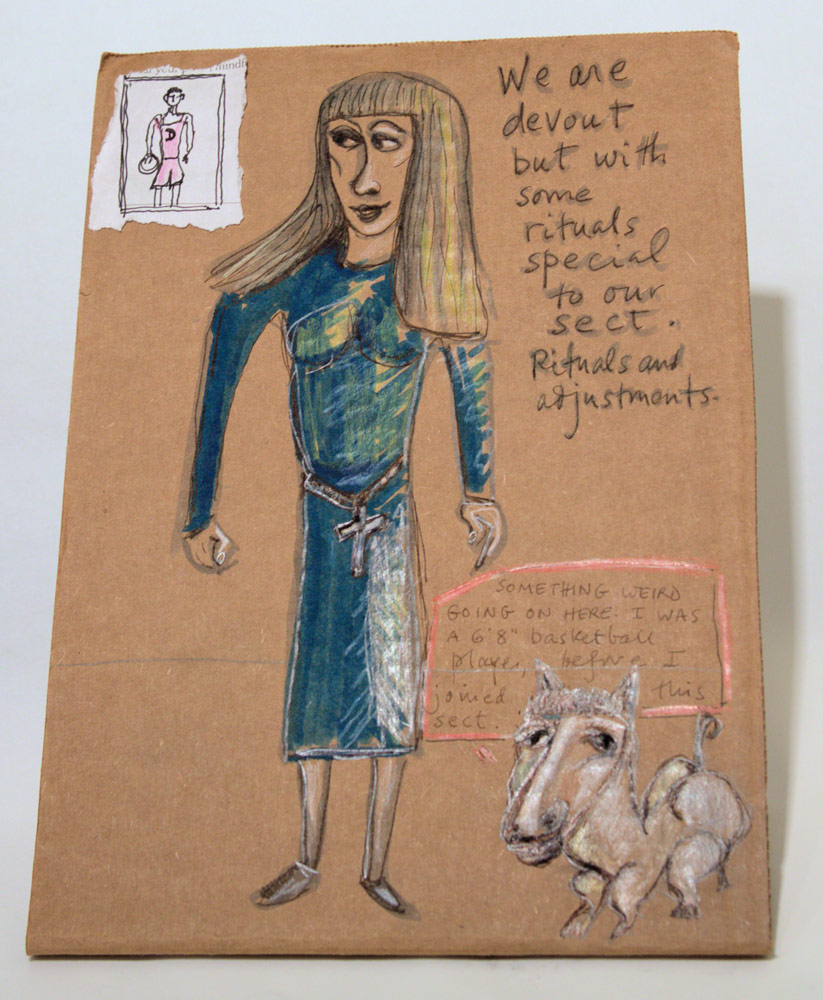 mindf
D
We are
devout
but with
some
rituals
special
to our
sect.
Rituals and
adjustments.
SOMETHING WEIRD
GOING ON HERE. I WAS
A 6'8" basketball
player, before I
joined this
sect.